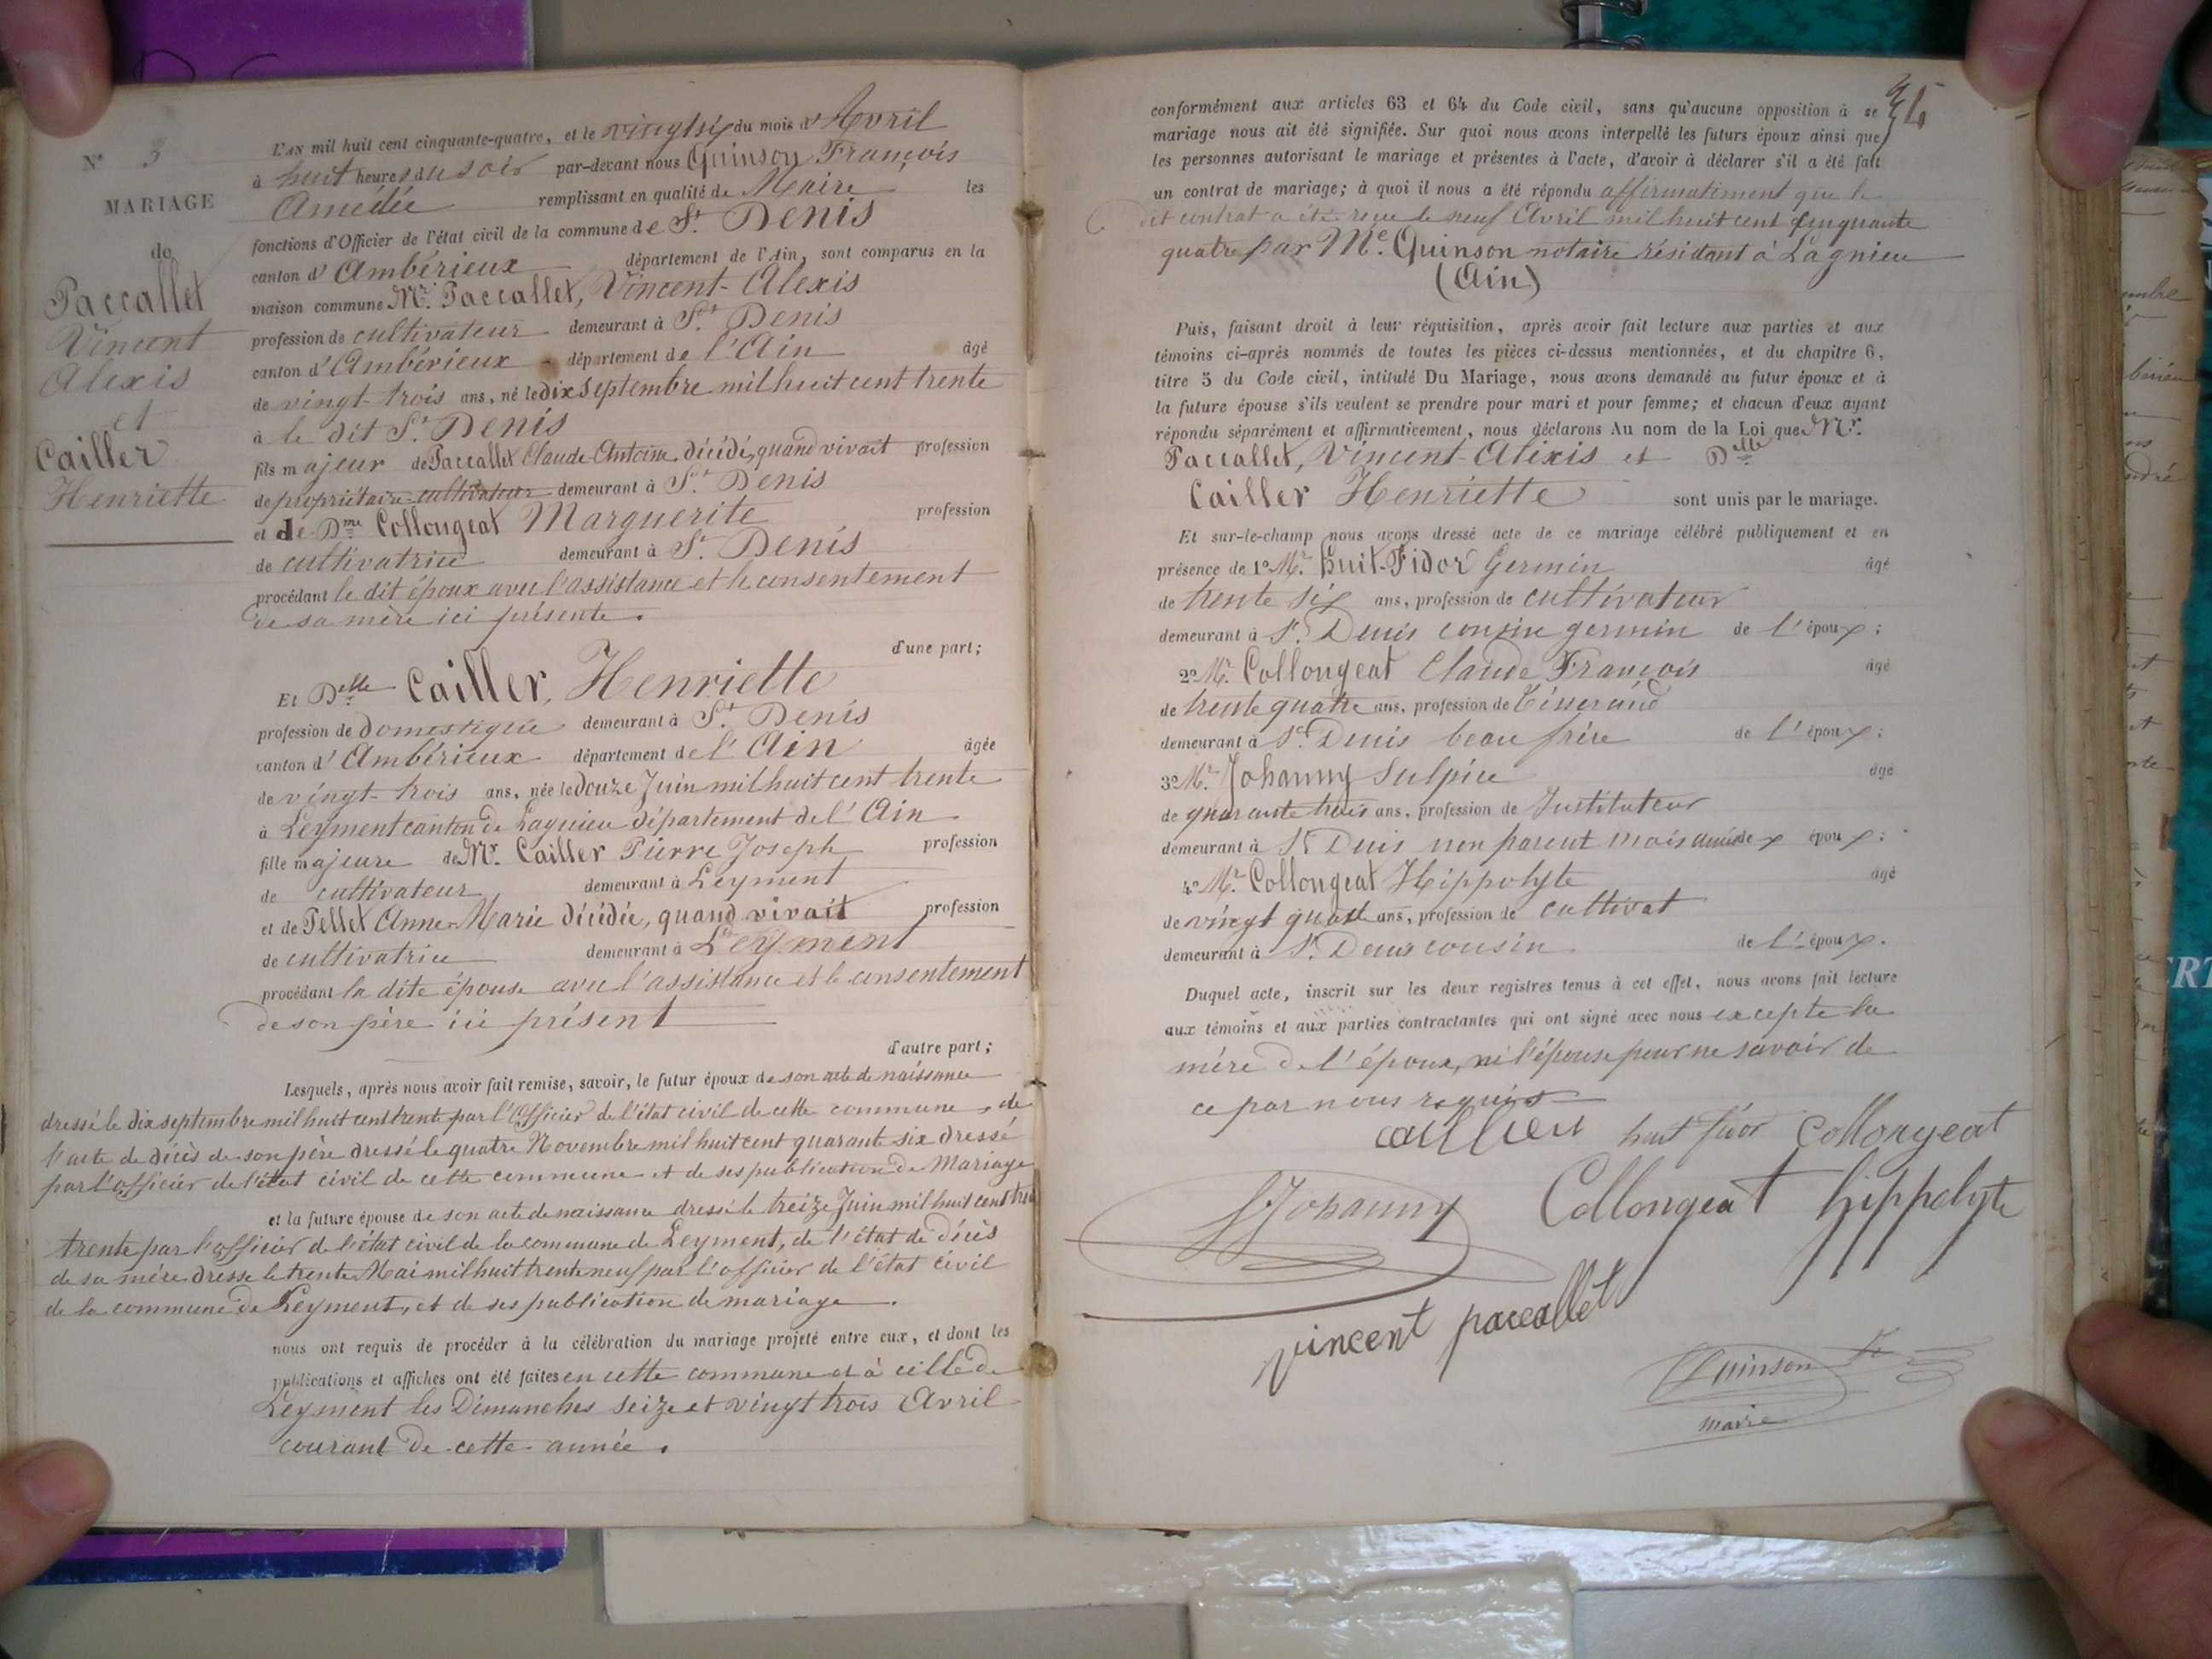 N° 3
MARIAGE
de
Paccallet
Vincent
Alexis
et
Cailler
Henriette
L'AN mil huit cent cinquante-quatre, et le vingt six du mois d'Avril
à huit heures du soir par-devant nous Quinson François
Amédée remplissant en qualité de Maire les
fonctions d'Officier de l'état civil de la commune de St. Denis
canton d'Ambérieux département de l'Ain, sont comparus en la
maison commune Mr. Paccallet, Vincent-Alexis
profession de cultivateur demeurant à St. Denis
canton d'Ambérieux département de l'Ain âgé
de vingt-trois ans, né le dix Septembre mil huit cent trente
à le dit St. Denis
fils majeur de Paccallet Claude-Antoine, décédé, quand vivait profession
de propriétaire-cultivateur demeurant à St. Denis
et de Dme Collongeat Marguerite profession
de cultivatrice demeurant à St. Denis
procédant le dit époux avec l'assistance et le consentement
de sa mère ici présente.
d'une part;
Et Delle Cailler, Henriette
profession de Domestique demeurant à St. Denis
canton d'Ambérieux département de l'Ain âgée
de vingt-trois ans, née le Douze Juin mil huit cent trente
à Leyment canton de Lagnieu département de l'Ain
fille majeure de Mr. Cailler Pierre Joseph profession
de cultivateur demeurant à Leyment
et de Pellet Anne-Marie décédée, quand vivait profession
de cultivatrice demeurant à Leyment
procédant la dite épouse avec l'assistance et le consentement
de son père ici présent
d'autre part;
Lesquels, après nous avoir fait remise, savoir, le futur époux de son acte de naissance
dressé le dix septembre mil huit cent trente par l'Officier de l'état civil de cette commune, de
l'acte de décès de son père dressé le quatre Novembre mil huit cent quarante six dressé
par l'officier de l'état civil de cette commune et de ses publication de Mariage
et la future épouse de son acte de naissance dressé le treize Juin mil huit cent
trente par l'officier de l'état civil de la commune de Leyment, de l'état de décès
de sa mère dresse le trente Mai mil huit trente neuf par l'officier de l'état civil
de la commune de Leyment, et de ses publication de mariage.
nous ont requis de procéder à la célébration du mariage projeté entre eux, et dont les
publications et affiches ont été faites en cette commune et à celle de
Leyment les Dimanches seize et vingt trois Avril
courant de cette année.
conformément aux articles 63 et 64 du Code civil, sans qu'aucune opposition à se
mariage nous ait été signifiée. Sur quoi nous avons interpellé les futurs époux ainsi que
les personnes autorisant le mariage et présentes à l'acte, d'avoir à déclarer s'il a été fait
un contrat de mariage; à quoi il nous a été répondu affirmatiment que le
dit contrat a été reçu le neuf Avril mil huit cent cinquante
quatre par Me. Quinson notaire résidant à Lagnieu
(Ain)
Puis, faisant droit à leur réquisition, après avoir fait lecture aux parties et aux
témoins ci-après nommés de toutes les pièces ci-dessus mentionnées, et du chapitre 6,
titre 5 du Code civil, intitulé Du Mariage, nous avons demandé au futur époux et à
la future épouse s'ils veulent se prendre pour mari et pour femme; et chacun d'eux ayant
répondu séparément et affirmativement, nous déclarons Au nom de la Loi que Mr.
Paccallet, Vincent-Alexis et Delle
Cailler Henriette sont unis par le mariage.
Et sur-le-champ nous avons dressé acte de ce mariage célébré publiquement et en
présence de 1° Mr. huit-Fidor Germin âgé
de trente six ans, profession de cultivateur
demeurant à St. Denis cousin germin de l'époux;
2° Mr. Collongeat Claude François âgé
de trente quatre ans, profession de Tisserand
demeurant à St. Denis beau frère de l'époux;
3° Mr. Johanny Sulpice âgé
de quarante trois ans, profession de Instituteur
demeurant à St Denis non parent mais ami de x époux;
4° Mr. Collongeat Hippolyte âgé
de vingt quatre ans, profession de cultivat
demeurant à St. Denis cousin de l'époux.
Duquel acte, inscrit sur les deux registres tenus à cet effet, nous avons fait lecture
aux témoins et aux parties contractantes qui ont signé avec nous excepte la
mére de l'époux, ni l'épouse pour ne savoir de
ce par nous requis
huit fidor Collongeat
SJohanny Collongeat hippolyte
vincent paccallet
Quinson
maire